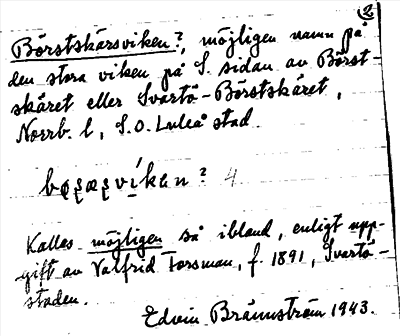 (2)
Börstskärsviken?, möjligen namn på
den stora viken på S. sidan av Börst-
skäret eller Svartö-Börstskäret,
Norrb. l, S.O. Luleå stad.
4
Kallas möjligen så ibland, enligt upp-
gift av Valfrid Forsman, f. 1891, Svartö-
staden.
Edvin Brännström 1943.